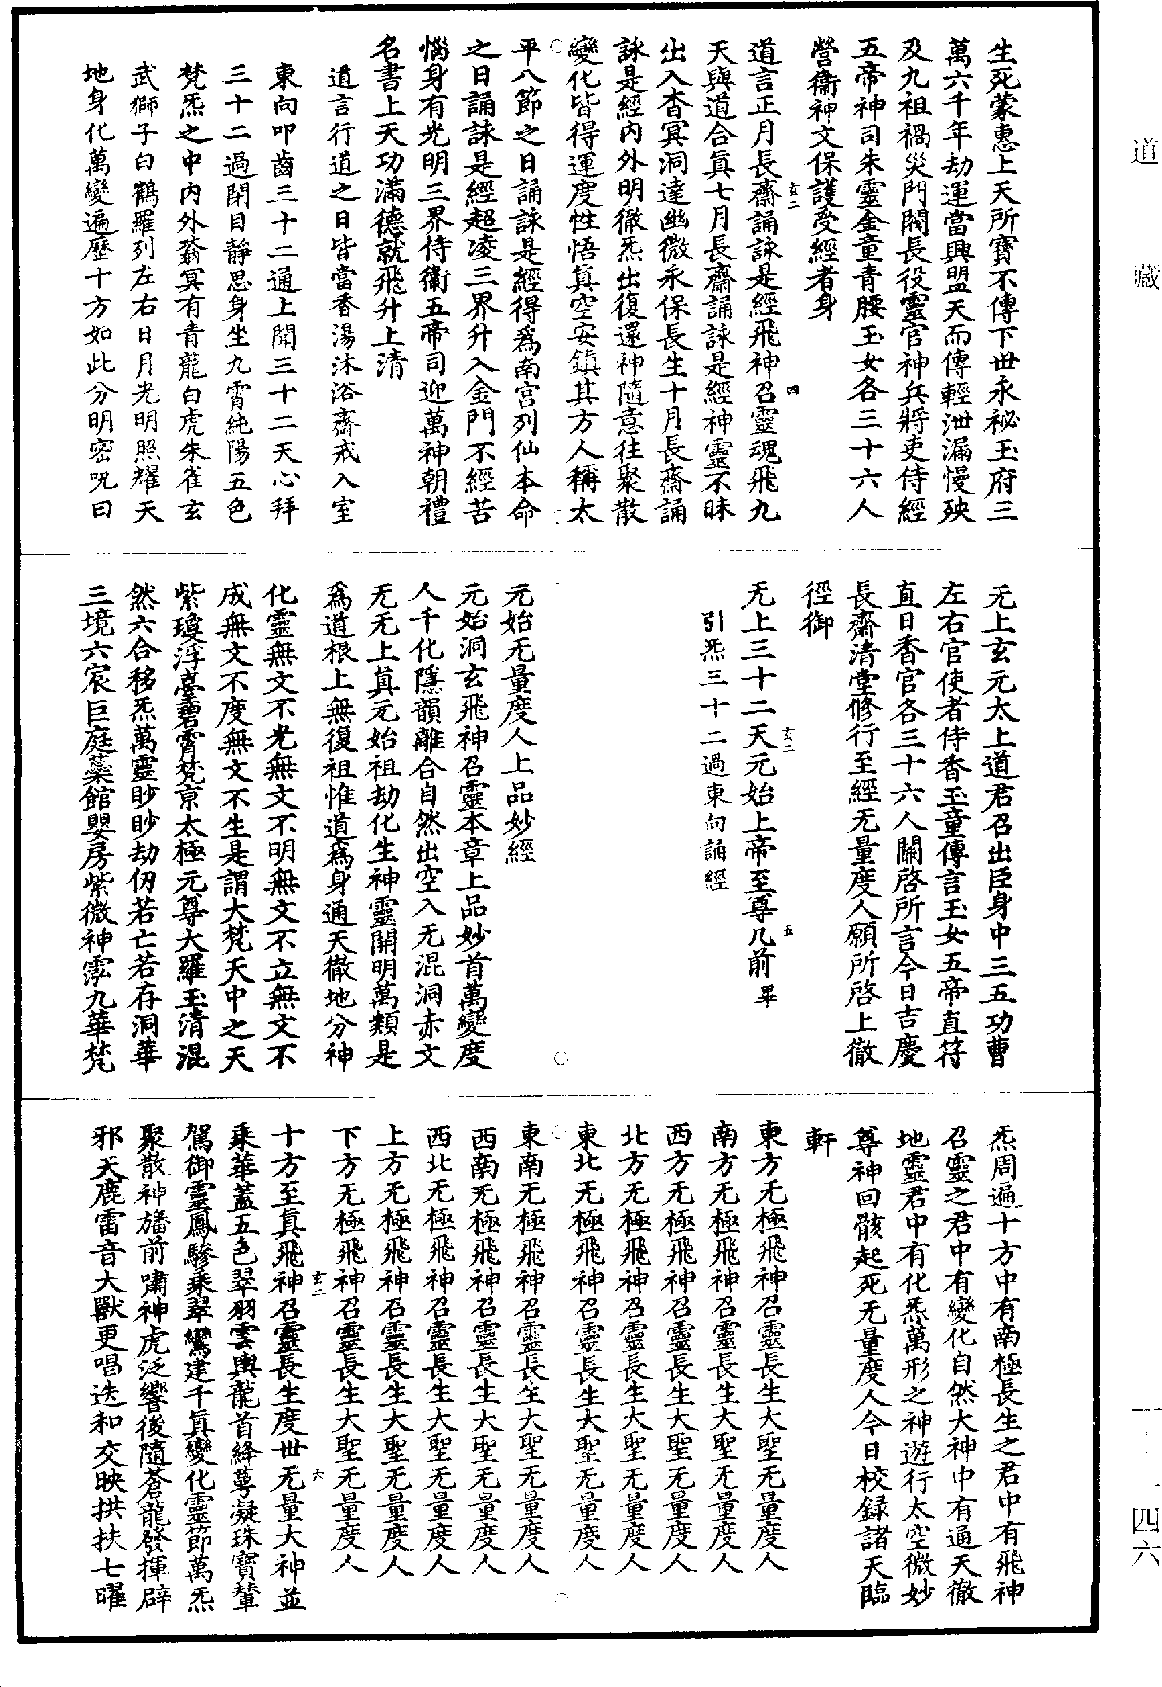 生死蒙惠上天所寶不傳下世永祕玉府三
萬六千年劫運當興盟天而傳輕泄漏慢殃
及九祖禍災門閥長役靈官神兵將吏侍經
五帝神司朱靈金童青腰玉女各三十六人
營衛神文保護受經者身
道言正月長齋誦詠是經飛神召靈魂飛九
天與道合真七月長齋誦詠是經神靈不昧
出入杳冥洞達幽微永保長生十月長齋誦
詠是經內外明徹炁出復還神隨意往聚散
變化皆得運度性悟真空安鎮其方人稱太
平八節之日誦詠是經得爲南宮列仙本命
之日誦詠是經超凌三界升入金門不經苦
惱身有光明三界侍衛五帝司迎萬神朝禮
名書上天功滿德就飛升上清
道言行道之日皆當香湯沐浴齋戒入室
東向叩齒三十二通上聞三十二天心拜
三十二過閉目靜思身坐九霄純陽五色
梵炁之中內外蓊冥有青龍白虎朱雀玄
武獅子白鶴羅列左右日月光明照耀天
地身化萬變遍歷十方如此分明密呪曰
无上玄元太上道君召出臣身中三五功曹
左右官使者侍香玉童傳言玉女五帝直符
直日香官各三十六人關啓所言今日吉慶
長齋清堂修行至經无量度人願所啓上徹
徑御
无上三十二天元始上帝至尊几前畢
引炁三十二過東向誦經
元始无量度人上品妙經
元始洞玄飛神召靈本章上品妙首萬變度
人千化隱韻離合自然出空入无混洞赤文
无无上真元始祖劫化生神靈開明萬類是
爲道根上無復祖惟道爲身通天徹地分神
化靈無文不光無文不明無文不立無文不
成無文不度無文不生是謂大梵天中之天
紫瓊浮臺碧霄梵京太極元尊大羅玉清混
然六合移炁萬靈眇眇劫仞若亡若存洞華
三境六宸巨庭蘂館嬰房紫微神霐九華梵
炁周遍十方中有南極長生之君中有飛神
召靈之君中有變化自然大神中有通天徹
地靈君中有化炁萬形之神遊行太空微妙
尊神回骸起死无量度人今日校錄諸天臨
軒
東方无極飛神召靈長生大聖无量度人
南方无極飛神召靈長生大聖无量度人
西方无極飛神召靈長生大聖无量度人
北方无極飛神召靈長生大聖无量度人
東北无極飛神召靈長生大聖无量度人
東南无極飛神召靈長生大聖无量度人
西南无極飛神召靈長生大聖无量度人
西北无極飛神召靈長生大聖无量度人
上方无極飛神召靈長生大聖无量度人
下方无極飛神召靈長生大聖无量度人
十方至真飛神召靈長生度世无量大神並
乘華蓋五色翠羽雲輿龍首絳蕚凝珠寶輦
駕御靈鳳驂乘翠鸞建千真變化靈節萬炁
聚散神旛前嘯神虎泛響後隨蒼龍發揮辟
邪天鹿雷音大獸更唱迭和交映拱扶七曜
玄二
四
玄二
五
玄二
六
道藏
一一四六